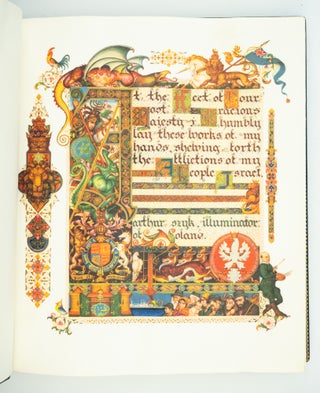 At the Feet of Your
Most Gracious
Majesty I humbly
lay these works of my
hands, shewing forth
the Afflictions of my
People Israel.
arthur szyk, illuminator
of Poland.